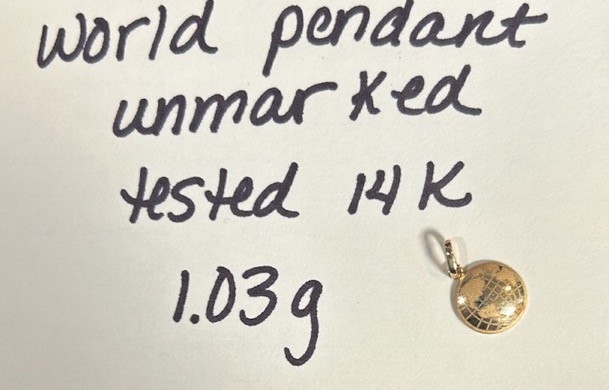 world pendant
unmarked
tested 14K
1.03g